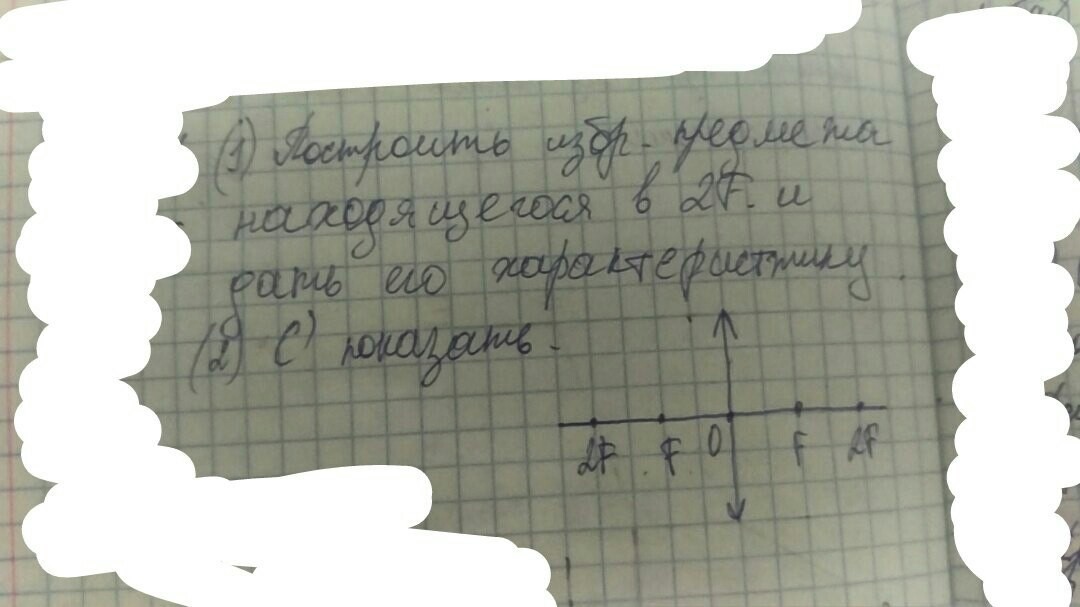 (1) Построить избр. предмета
находящегося в 2F. и
дать его характеристику.
(2) С' показать.
2F F O F 2F